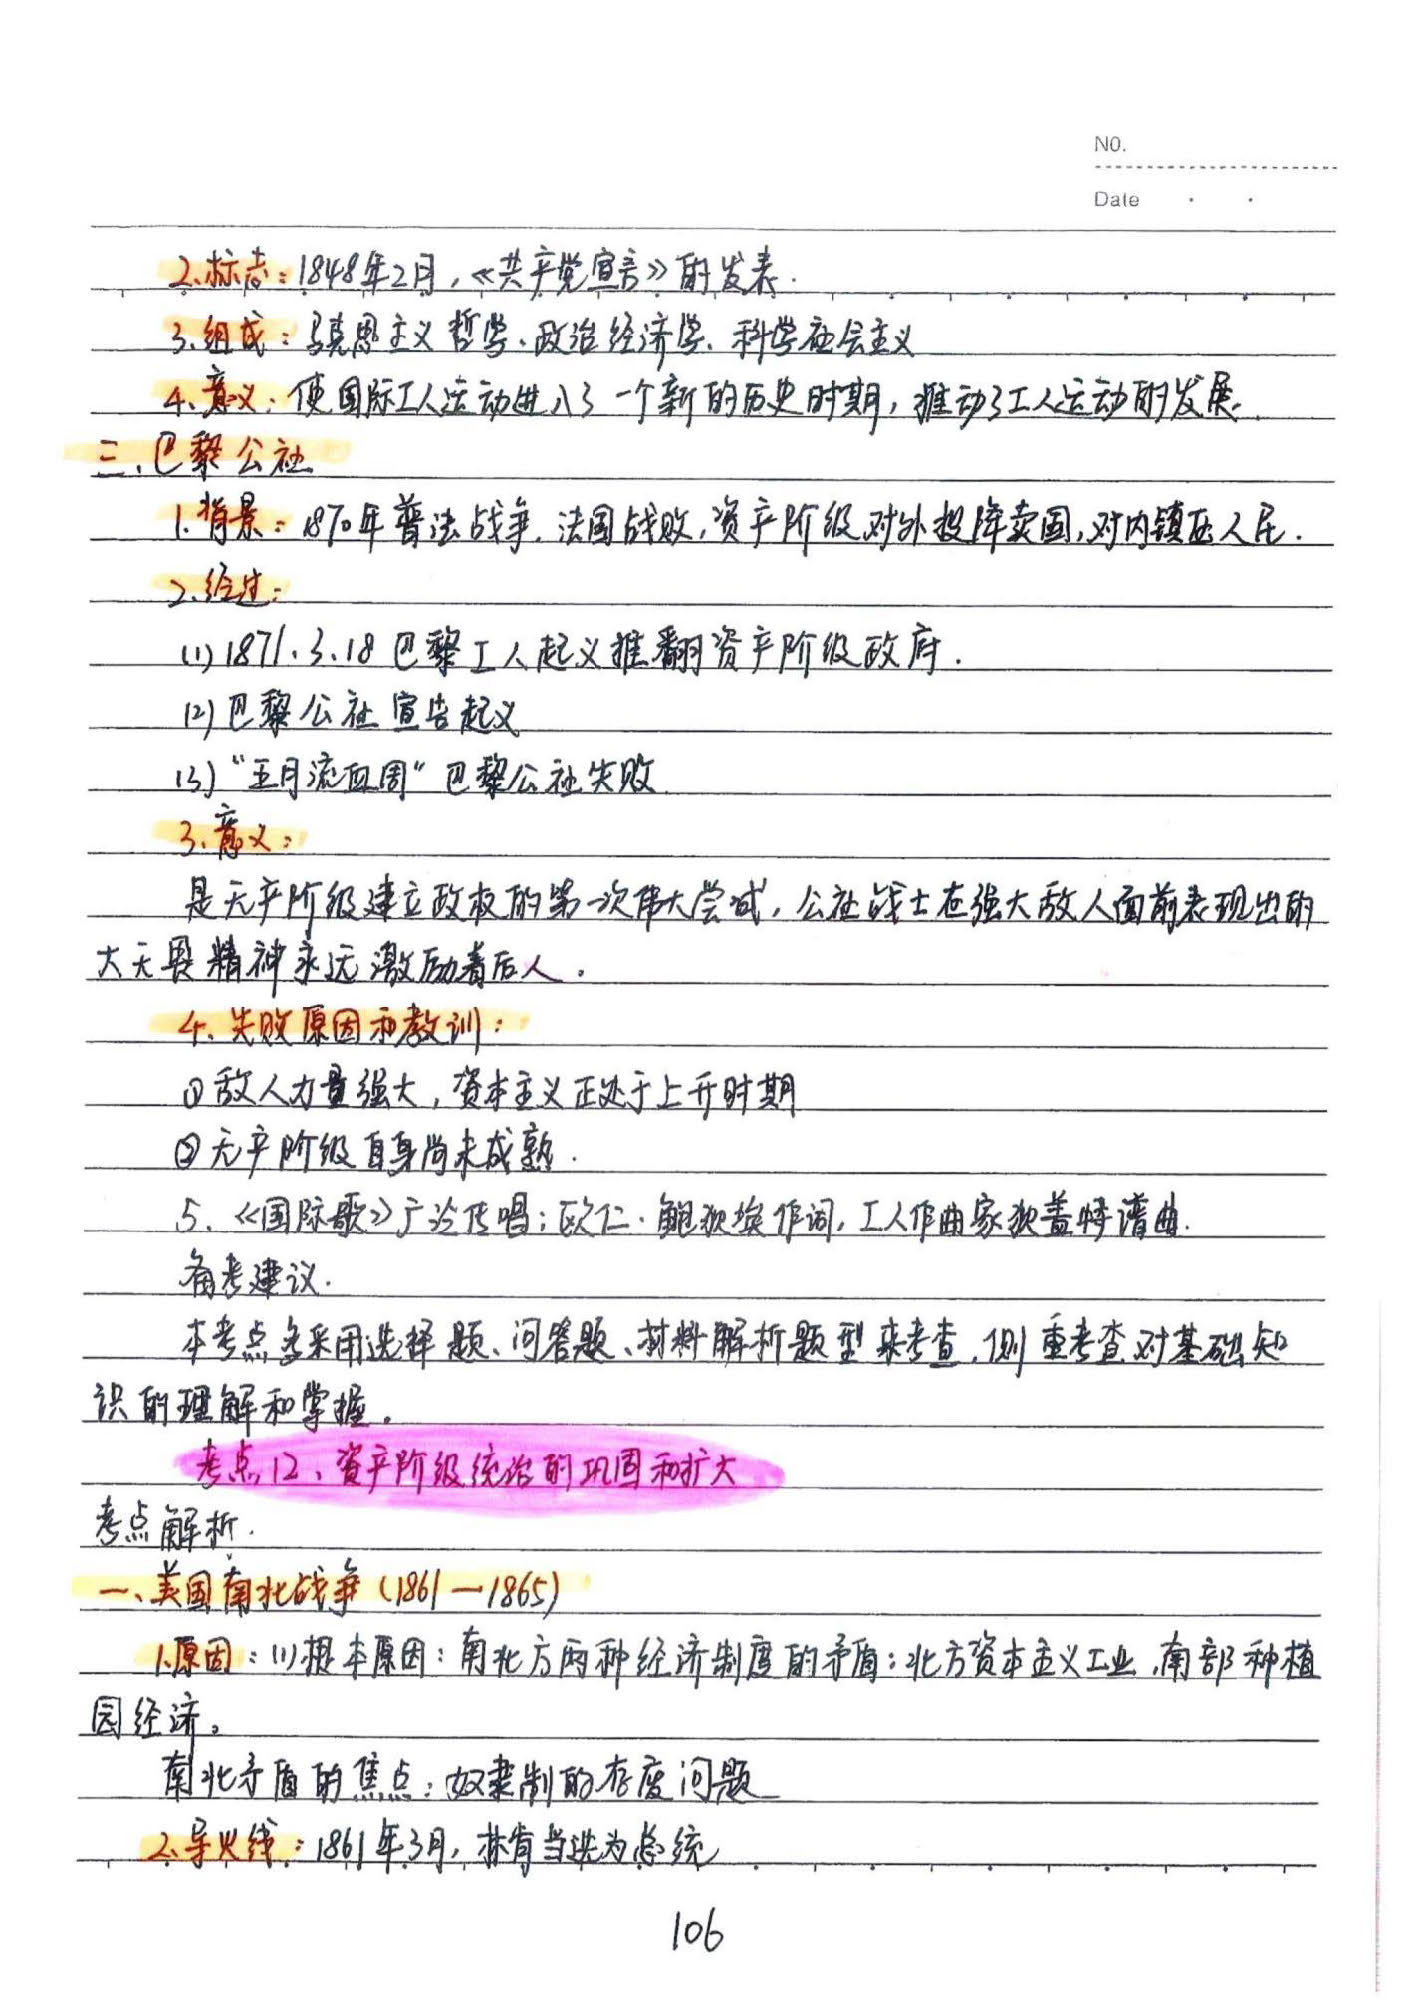 NO.
Date
2、标志：1848年2月，《共产党宣言》的发表.
3、组成：马克思主义哲学、政治经济学、科学社会主义
4、意义：使国际工人运动进入了一个新的历史时期，推动了工人运动的发展.
三、巴黎公社
1、背景：1870年普法战争，法国战败，资产阶级对外投降卖国，对内镇压人民.
2、经过：
(1) 1871.3.18 巴黎工人起义推翻资产阶级政府.
(2) 巴黎公社宣告起义
(3) “五月流血周” 巴黎公社失败
3、意义：
是无产阶级建立政权的第一次伟大尝试，公社战士在强大敌人面前表现出的
大无畏精神永远激励着后人。
4、失败原因和教训：
①敌人力量强大，资本主义正处于上升时期
②无产阶级自身尚未成熟.
5、《国际歌》广泛传唱；欧仁·鲍狄埃作词，工人作曲家狄盖特谱曲.
备考建议.
本考点多采用选择题、问答题、材料解析题型来考查，侧重考查对基础知
识的理解和掌握。
考点12、资产阶级统治的巩固和扩大
考点解析.
一、美国南北战争（1861—1865）
1、原因：(1)根本原因：南北方两种经济制度的矛盾：北方资本主义工业，南部种植
园经济。
南北矛盾的焦点：奴隶制的存废问题
2、导火线：1861年3月，林肯当选为总统
106